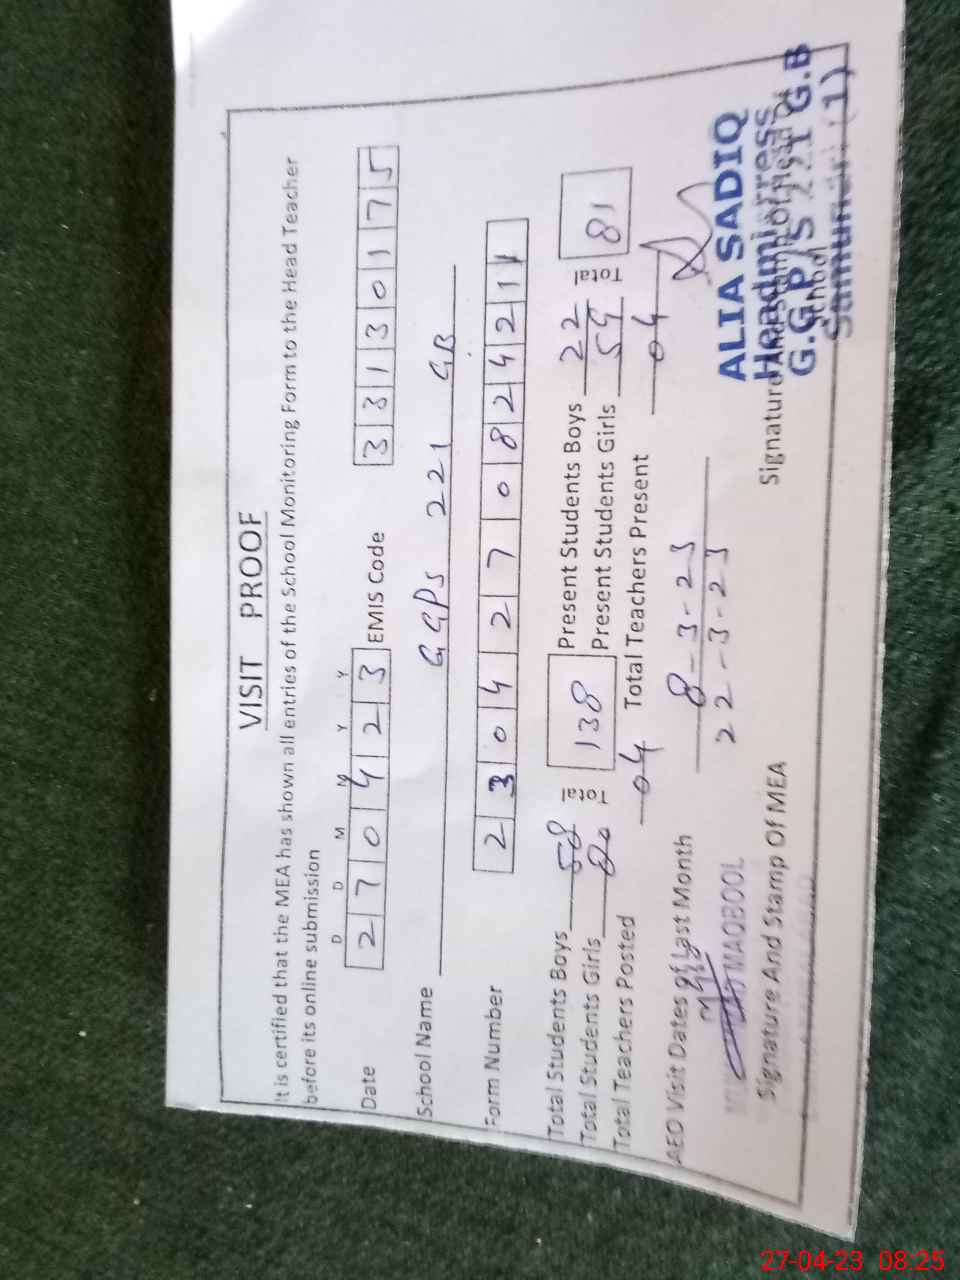 VISIT PROOF
It is certified that the MEA has shown all entries of the School Monitoring Form to the Head Teacher
before its online submission
D D M M Y Y
Date 2 7 0 4 2 3 EMIS Code 3 3 1 3 0 1 7 5
School Name GGPS 221 GB
Form Number 2 3 0 4 2 7 0 8 2 4 2 1 1
Total Students Boys 58 Total 138 Present Students Boys 22 Total 81
Total Students Girls 80 Present Students Girls 59
Total Teachers Posted 04 Total Teachers Present 04
AEO Visit Dates of Last Month 8-3-23
22-3-23
MAQBOOL
Signature And Stamp Of MEA
ALIA SADIQ
Headmistress
Signature And Stamp Of Head Of
School
G.G.P/S 221 G.B
Samundri (1)
27-04-23 08:25